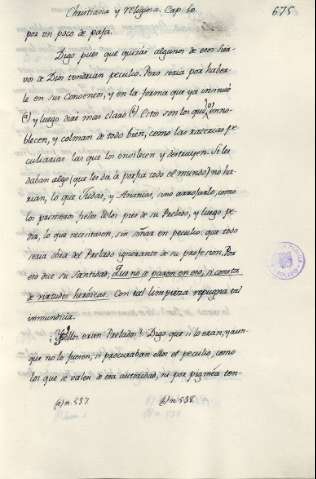 Christiana y religiosa. Cap. 60. 675
por un poco de paja.
Digo pues que quizás algunos de esos sier-
vos de Dios tendrían peculio. Pero sería por haber-
le en sus conventos, y en la forma que ya insinué
(a) y luego diré mas claro (b) Estos son los que enno-
blecen, y colman de todo bien, como las raterias pe-
culiarias las que los envilecen y destruyen. Si les
daban algo (que les da la porfia todo el mundo) no ha-
rían, lo que Judas, y Ananias, sino arrojarlo, como
los primeros fieles a los pies de su Prelado, y luego pe-
dir, lo que necesitasen, sin soñar en peculio: que todo
sería obra del Prelado ignorante de su profesion. Por
eso dice su Santidad, Que no pararon en eso, a
de virtudes heróicas. Con tal limpieza repugna tal
inmundicia.
eran Prelados? Digo que si lo eran, y aun
que no lo fuesen, ni procuraban ellos el peculio, como
los que se valen de esa autoridad, ni por pignèa con-
(a) n. 537. (b) n. 538.